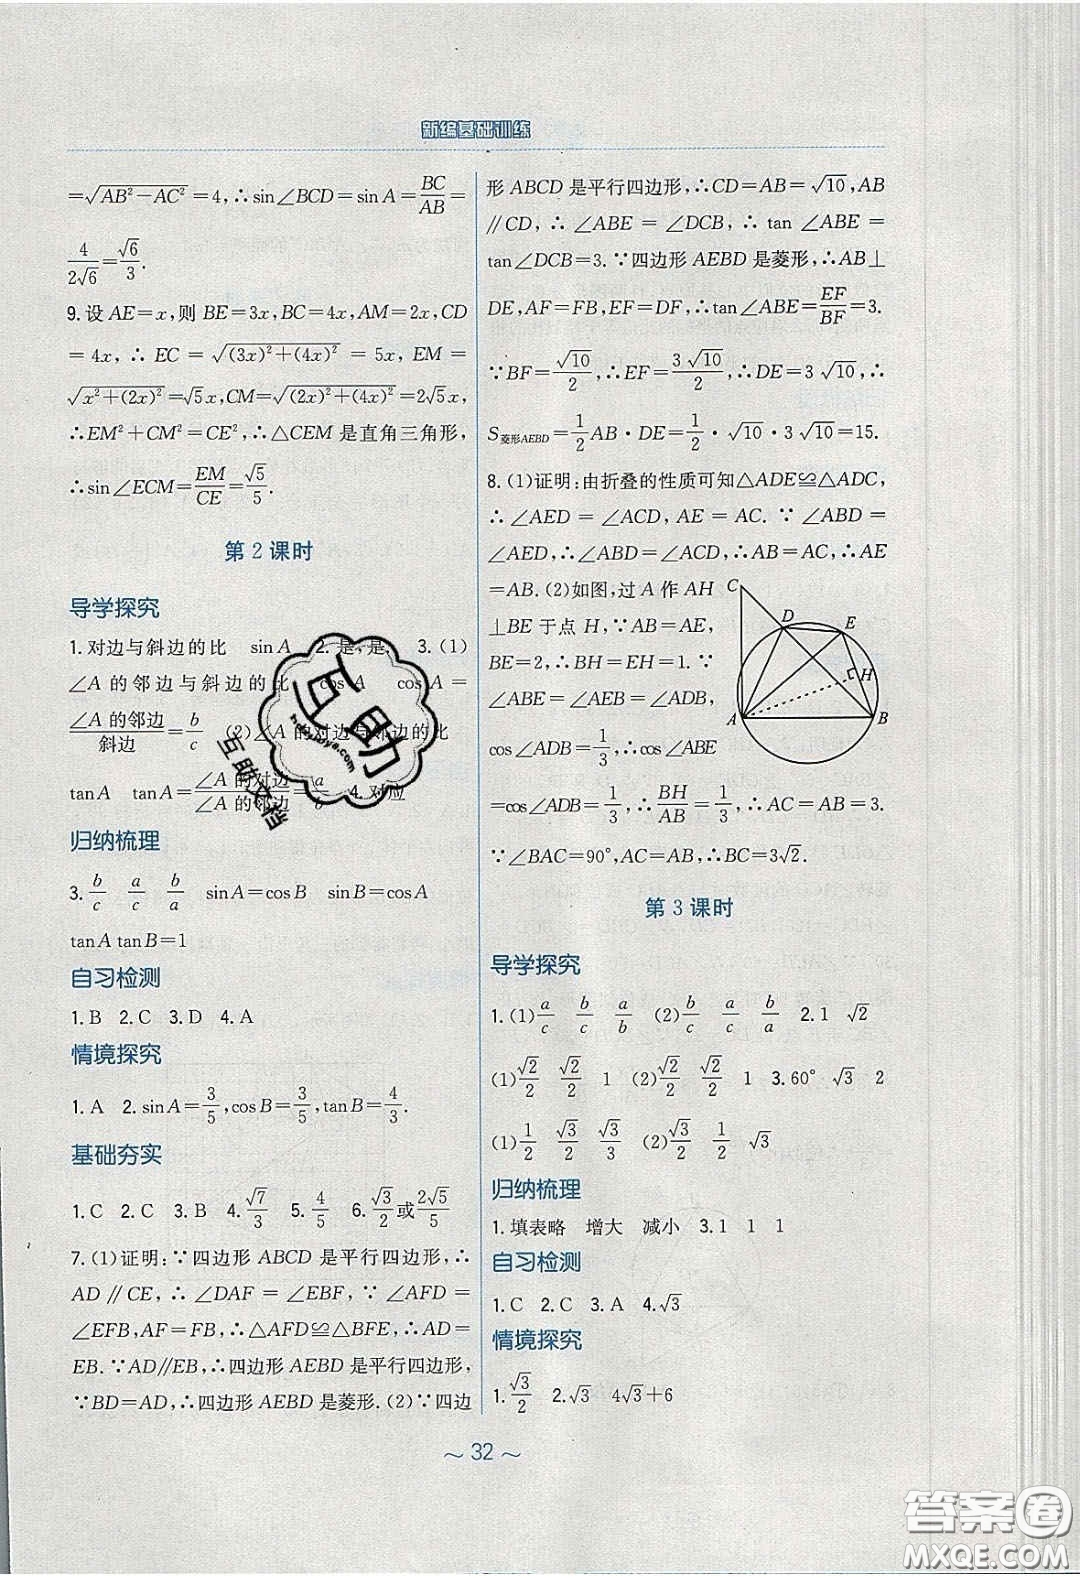 新编基础训练
=√(AB²−AC²)=4,∴sin∠BCD=sinA=BC/AB=
4/(2√6)=√6/3.
9.设AE=x,则BE=3x,BC=4x,AM=2x,CD
=4x,∴EC=√((3x)²+(4x)²)=5x,EM=
√(x²+(2x)²)=√5x,CM=√((2x)²+(4x)²)=2√5x,
∴EM²+CM²=CE²,∴△CEM是直角三角形,
∴sin∠ECM=EM/CE=√5/5.
第2课时
导学探究
1.对边与斜边的比 sinA 2.是,是. 3.(1)
∠A的邻边与斜边的比 cosA cosA=
∠A的邻边/斜边=b/c (2)∠A的对边与邻边的比
tanA tanA=∠A的对边/∠A的邻边=a/b 4.对应
归纳梳理
3. b/c a/c b/a sinA=cosB sinB=cosA
tanA tanB=1
自习检测
1.B 2.C 3.D 4.A
情境探究
1.A 2.sinA=3/5,cosB=3/5,tanB=4/3.
基础夯实
1.C 2.C 3.B 4.√7/3 5.4/5 6.√3/2或2√5/5
7.(1)证明:∵四边形ABCD是平行四边形,∴
AD∥CE,∴∠DAF=∠EBF,∵∠AFD=
∠EFB,AF=FB,∴△AFD≌△BFE,∴AD=
EB.∵AD∥EB,∴四边形AEBD是平行四边形,
∵BD=AD,∴四边形AEBD是菱形.(2)∵四边
形ABCD是平行四边形,∴CD=AB=√10,AB
∥CD,∴∠ABE=∠DCB,∴tan∠ABE=
tan∠DCB=3.∵四边形AEBD是菱形,∴AB⊥
DE,AF=FB,EF=DF,∴tan∠ABE=EF/BF=3.
∵BF=√10/2,∴EF=3√10/2,∴DE=3√10,∴
S菱形AEBD=1/2AB·DE=1/2·√10·3√10=15.
8.(1)证明:由折叠的性质可知△ADE≌△ADC,
∴∠AED=∠ACD,AE=AC.∵∠ABD=
∠AED,∴∠ABD=∠ACD,∴AB=AC,∴AE
=AB.(2)如图,过A作AH
⊥BE于点H,∵AB=AE,
BE=2,∴BH=EH=1.∵
∠ABE=∠AEB=∠ADB,
cos∠ADB=1/3,∴cos∠ABE
=cos∠ADB=1/3,∴BH/AB=1/3,∴AC=AB=3.
∵∠BAC=90°,AC=AB,∴BC=3√2.
C
D
E
H
A
B
第3课时
导学探究
1.(1)a/c b/c a/b (2)b/c a/c b/a 2.1 √2
(1)√2/2 √2/2 1 (2)√2/2 √2/2 1 3.60° √3 2
(1)1/2 √3/2 √3/3 (2)√3/2 1/2 √3
归纳梳理
1.填表略 增大 减小 3.1 1 1
自习检测
1.C 2.C 3.A 4.√3
情境探究
1.√3/2 2.√3 4√3+6
~32~
互助
hdzuoye.com
互助文档
答案圈
MXQE.COM